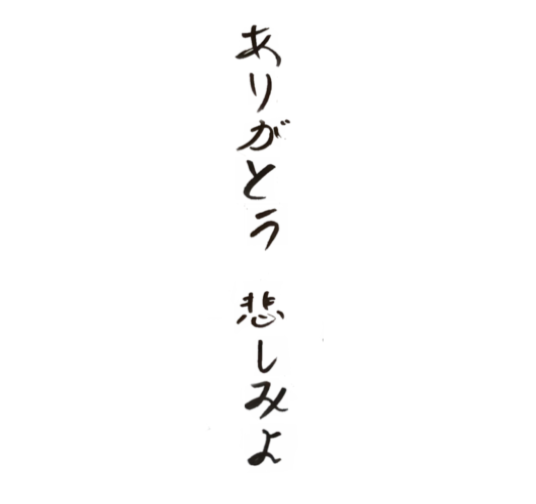 ありがとう 悲しみよ